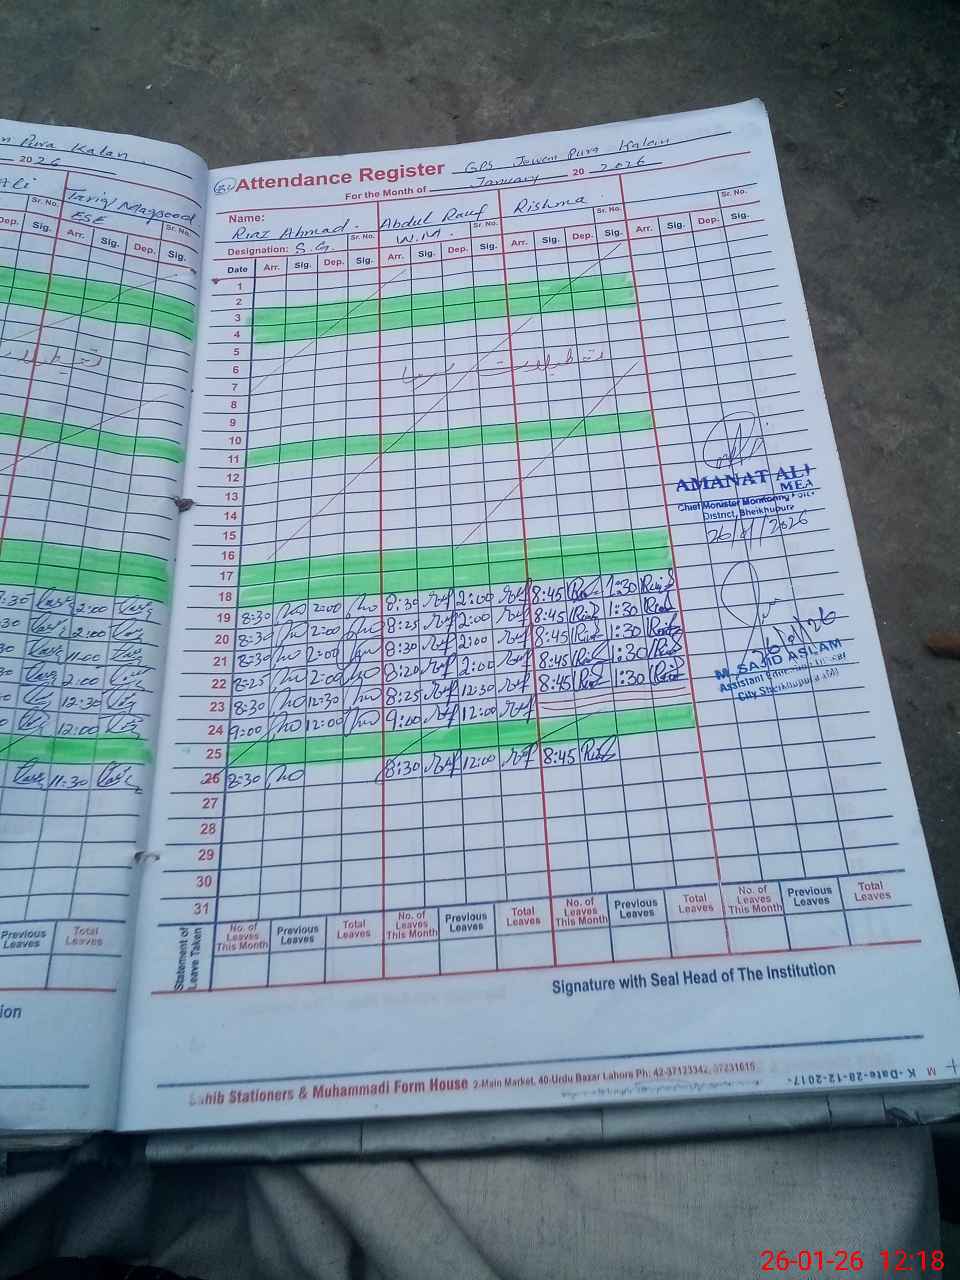 Pura Kalan
20 26
Ali
Tariq Maqsood
Sr. No.
Sr. No.
ESE
Dep. Sig. Arr. Sig. Dep. Sig.
Attendance Register GPS Jowem Pura Kalan
For the Month of January 20 2026
Name: Riaz Ahmad. Abdul Rauf Rishma
Designation: S.G. Sr. No. W.M. Sr. No. Sr. No. Sr. No.
Date Arr. Sig. Dep. Sig. Arr. Sig. Dep. Sig. Arr. Sig. Dep. Sig. Arr. Sig. Dep. Sig.
1
2
3
4
5
6
7
8
9
10
11
12
13
14
15
16
17
18
19 8:30 2:00 8:30 2:00 8:45 1:30
20 8:30 2:00 8:25 2:00 8:45 1:30
21 8:30 2:00 8:30 2:00 8:45 1:30
22 8:25 2:00 8:20 2:00 8:45 1:30
23 8:30 12:30 8:25 12:30 8:45 1:30
24 9:00 12:00 9:00 12:00
25
26 8:30 8:30 12:00 8:45
27
28
29
30
31
2:00
2:00
11:00
2:00
12:30
12:00
11:30
AMANAT ALI
MEA
Chief Monister Monitoring
District, Sheikhupura
26/1/2026
M. SAJID ASLAM
Assistant
City Sheikhupura
Statement of Leave Taken
No. of Leaves This Month Previous Leaves Total Leaves No. of Leaves This Month Previous Leaves Total Leaves No. of Leaves This Month Previous Leaves Total Leaves No. of Leaves This Month Previous Leaves Total Leaves
Previous Leaves Total Leaves
Signature with Seal Head of The Institution
ion
Sahib Stationers & Muhammadi Form House 2-Main Market, 40-Urdu Bazar Lahore Ph: 42-37123342, 37231615
M K -Date-28-12-2017-
26-01-26 12:18